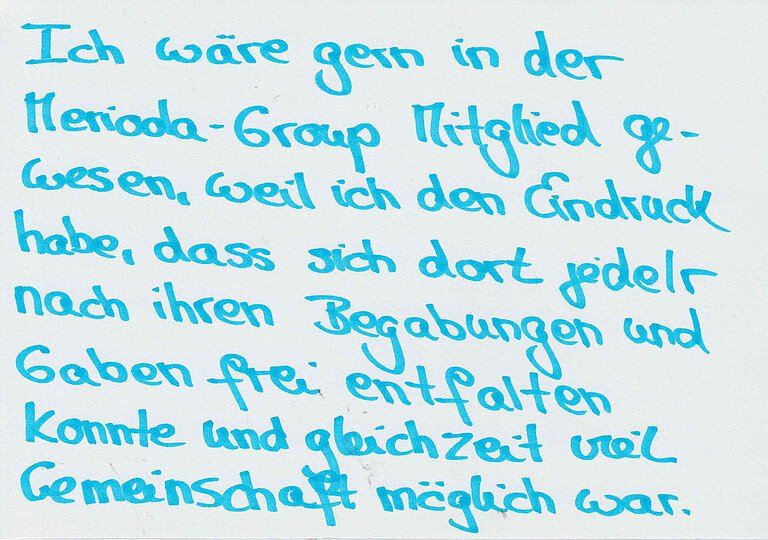 Ich wäre gern in der
Merioda-Group Mitglied ge-
wesen, weil ich den Eindruck
habe, dass sich dort jede/r
nach ihren Begabungen und
Gaben frei entfalten
konnte und gleichzeit viel
Gemeinschaft möglich war.